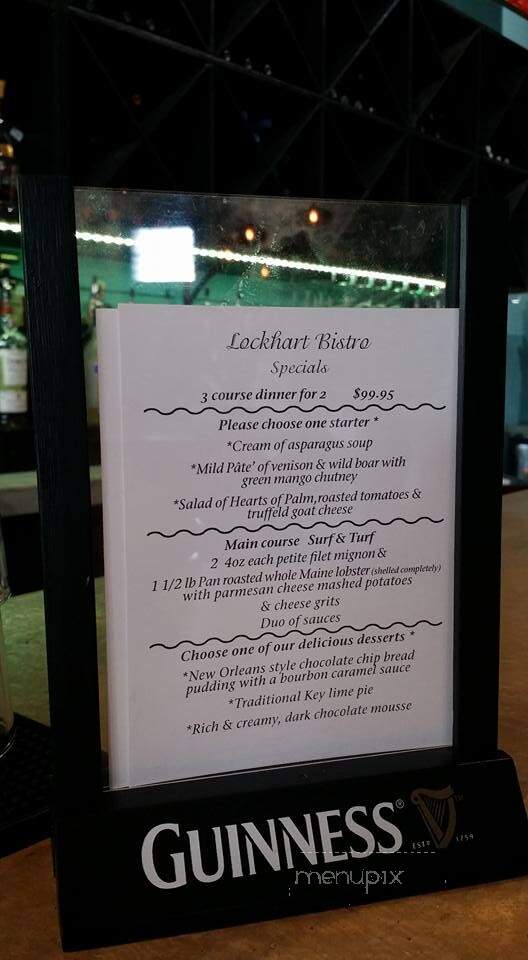 Lockhart Bistro
Specials
3 course dinner for 2 $99.95
Please choose one starter *
*Cream of asparagus soup
*Mild Pâte' of venison & wild boar with
green mango chutney
*Salad of Hearts of Palm,roasted tomatoes &
truffeld goat cheese
Main course Surf & Turf
2 4oz each petite filet mignon &
1 1/2 lb Pan roasted whole Maine lobster (shelled completely)
with parmesan cheese mashed potatoes
& cheese grits
Duo of sauces
Choose one of our delicious desserts *
*New Orleans style chocolate chip bread
pudding with a bourbon caramel sauce
*Traditional Key lime pie
*Rich & creamy, dark chocolate mousse
GUINNESS®
ESTD 1759
menupix